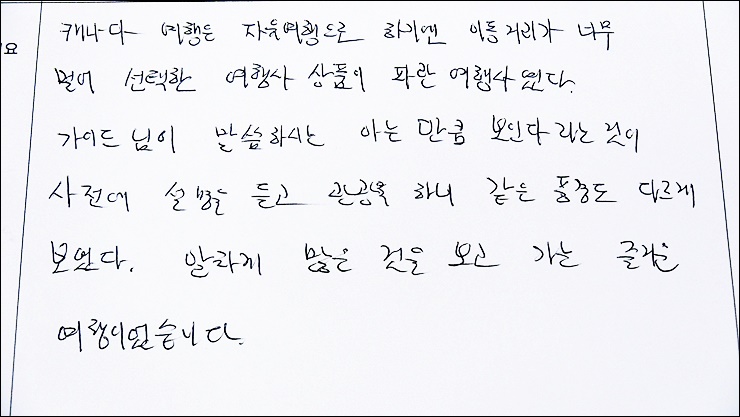 캐나다 여행은 자유여행으로 하기엔 이동거리가 너무
요
멀어 선택한 여행사 상품이 파란 여행사였다.
가이드님이 말씀하시는 아는 만큼 보인다라는 것이
사전에 설명을 듣고 관광을 하니 같은 풍경도 다르게
보였다. 알차게 많은 것을 보고 가는 즐거운
여행이었습니다.